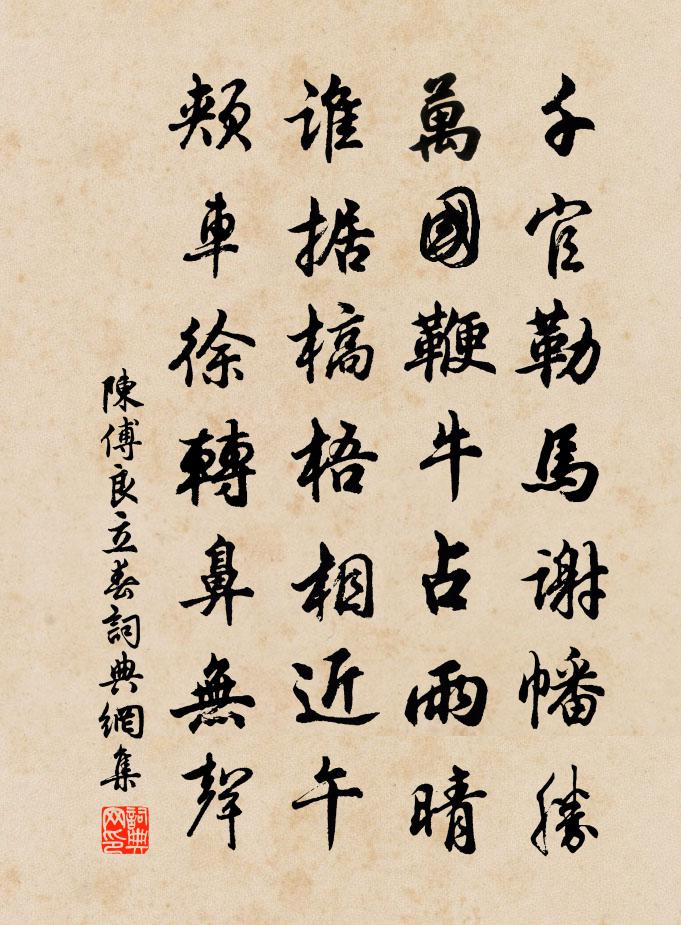 千官勒馬謝幡勝
萬國鞭牛占雨晴
誰据槁梧相近午
頰車徐轉鼻無聲
陳傅良立春詞典網集
詞典网印